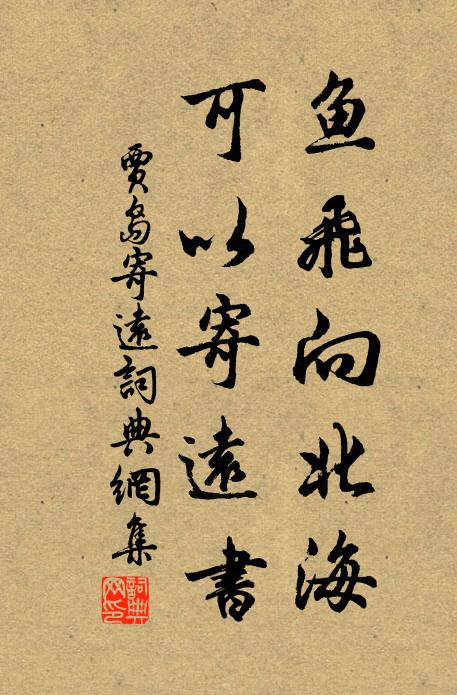 鱼飛向北海
可以寄遠書
賈島寄遠詞典網集
詞典網印